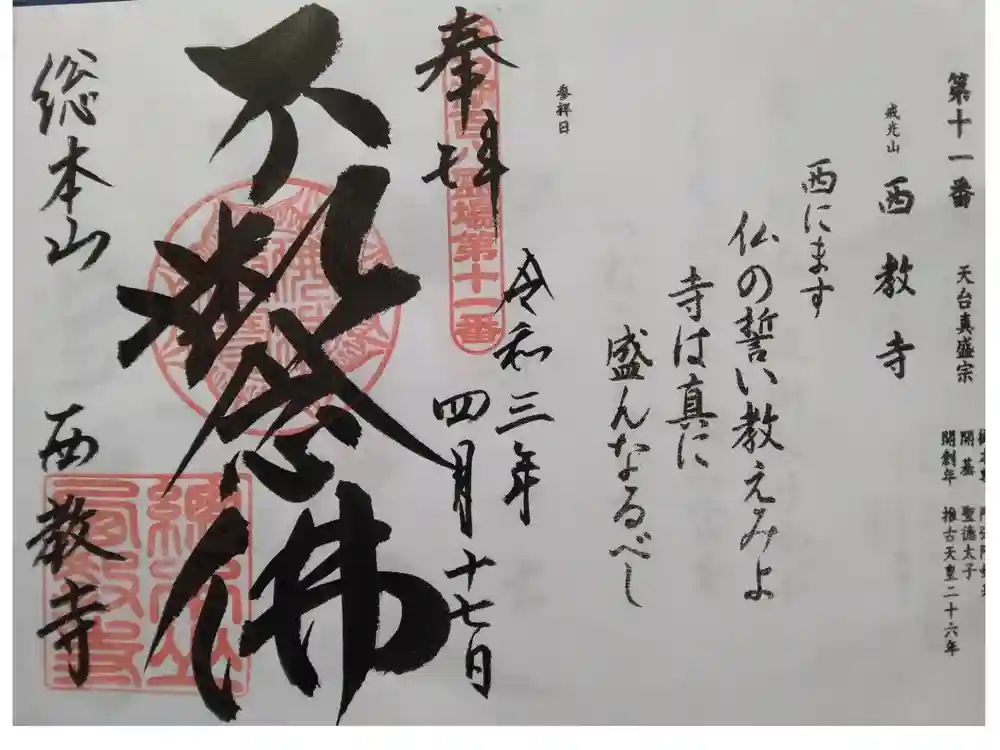 第十一番 天台真盛宗
開基 聖徳太子
開創年 推古天皇二十六年
戒光山 西教寺
西にます
仏の誓い教えみよ
寺は真に
盛んなるべし
参拝日
奉拝
百八霊場第十一番
令和三年
四月十七日
不斷念佛
総本山 西教寺
總本山
西教寺